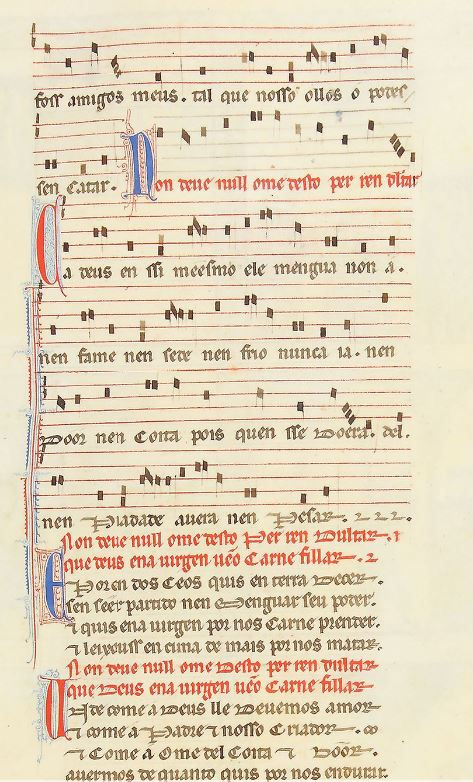 foss amigos meus. tal que nosso ollos o podes
sen catar. Non deve null ome desto per ren dultar
Ca deus en ssi meesmo ele mengua non á.
nen fame nen sede nen frio nunca ia. nen
door nen coita pois quen sse doera. del.
nen piadade avera nen pesar.
Non deve null ome desto per ren dultar.
que deus ena virgen vẽo carne fillar.
E poren dos ceos quis en terra decer.
sen seer partido nen menguar seu poder.
⁊ quis ena virgen por nos carne prender.
⁊ leixouss en cima de mais por nos matar.
Non deve null ome desto per ren dultar
que deus ena virgen vẽo carne fillar
Onde come a deus lle devemos amor
⁊ come a padre ⁊ nosso criador.
⁊ come a ome del coita ⁊ door.
avermos de quanto quis por nos endurar.